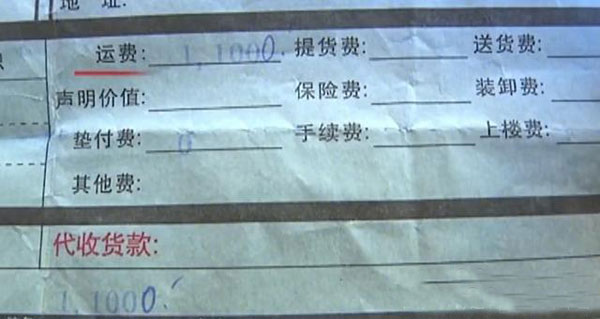 地 址:
运费: 1,1000. 提货费: 送货费:
声明价值: 保险费: 装卸费:
垫付费: 0 手续费: 上楼费:
其他费:
代收货款:
1,1000.